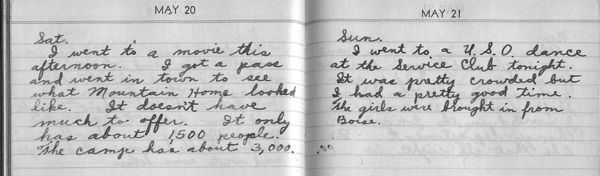 MAY 20
Sat.
I went to a movie this
afternoon. I got a pass
and went in town to see
what Mountain Home looked
like. It doesn't have
much to offer. It only
has about 1500 people.
The camp has about 3,000.
MAY 21
Sun.
I went to a U.S.O. dance
at the Service Club tonight.
It was pretty crowded but
I had a pretty good time.
The girls were brought in from
Boise.